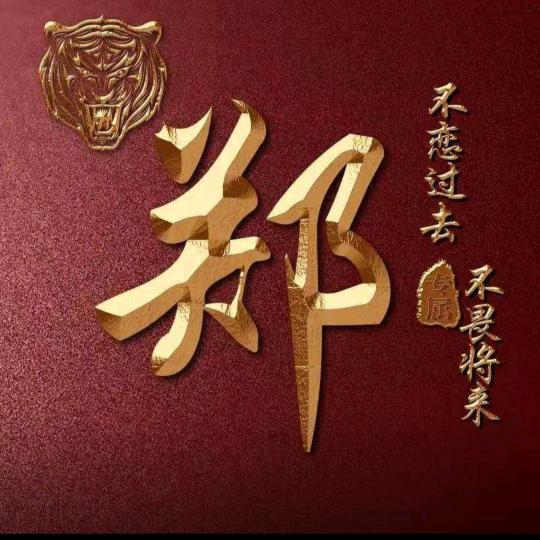 郑
不恋过去
不畏将来
专属